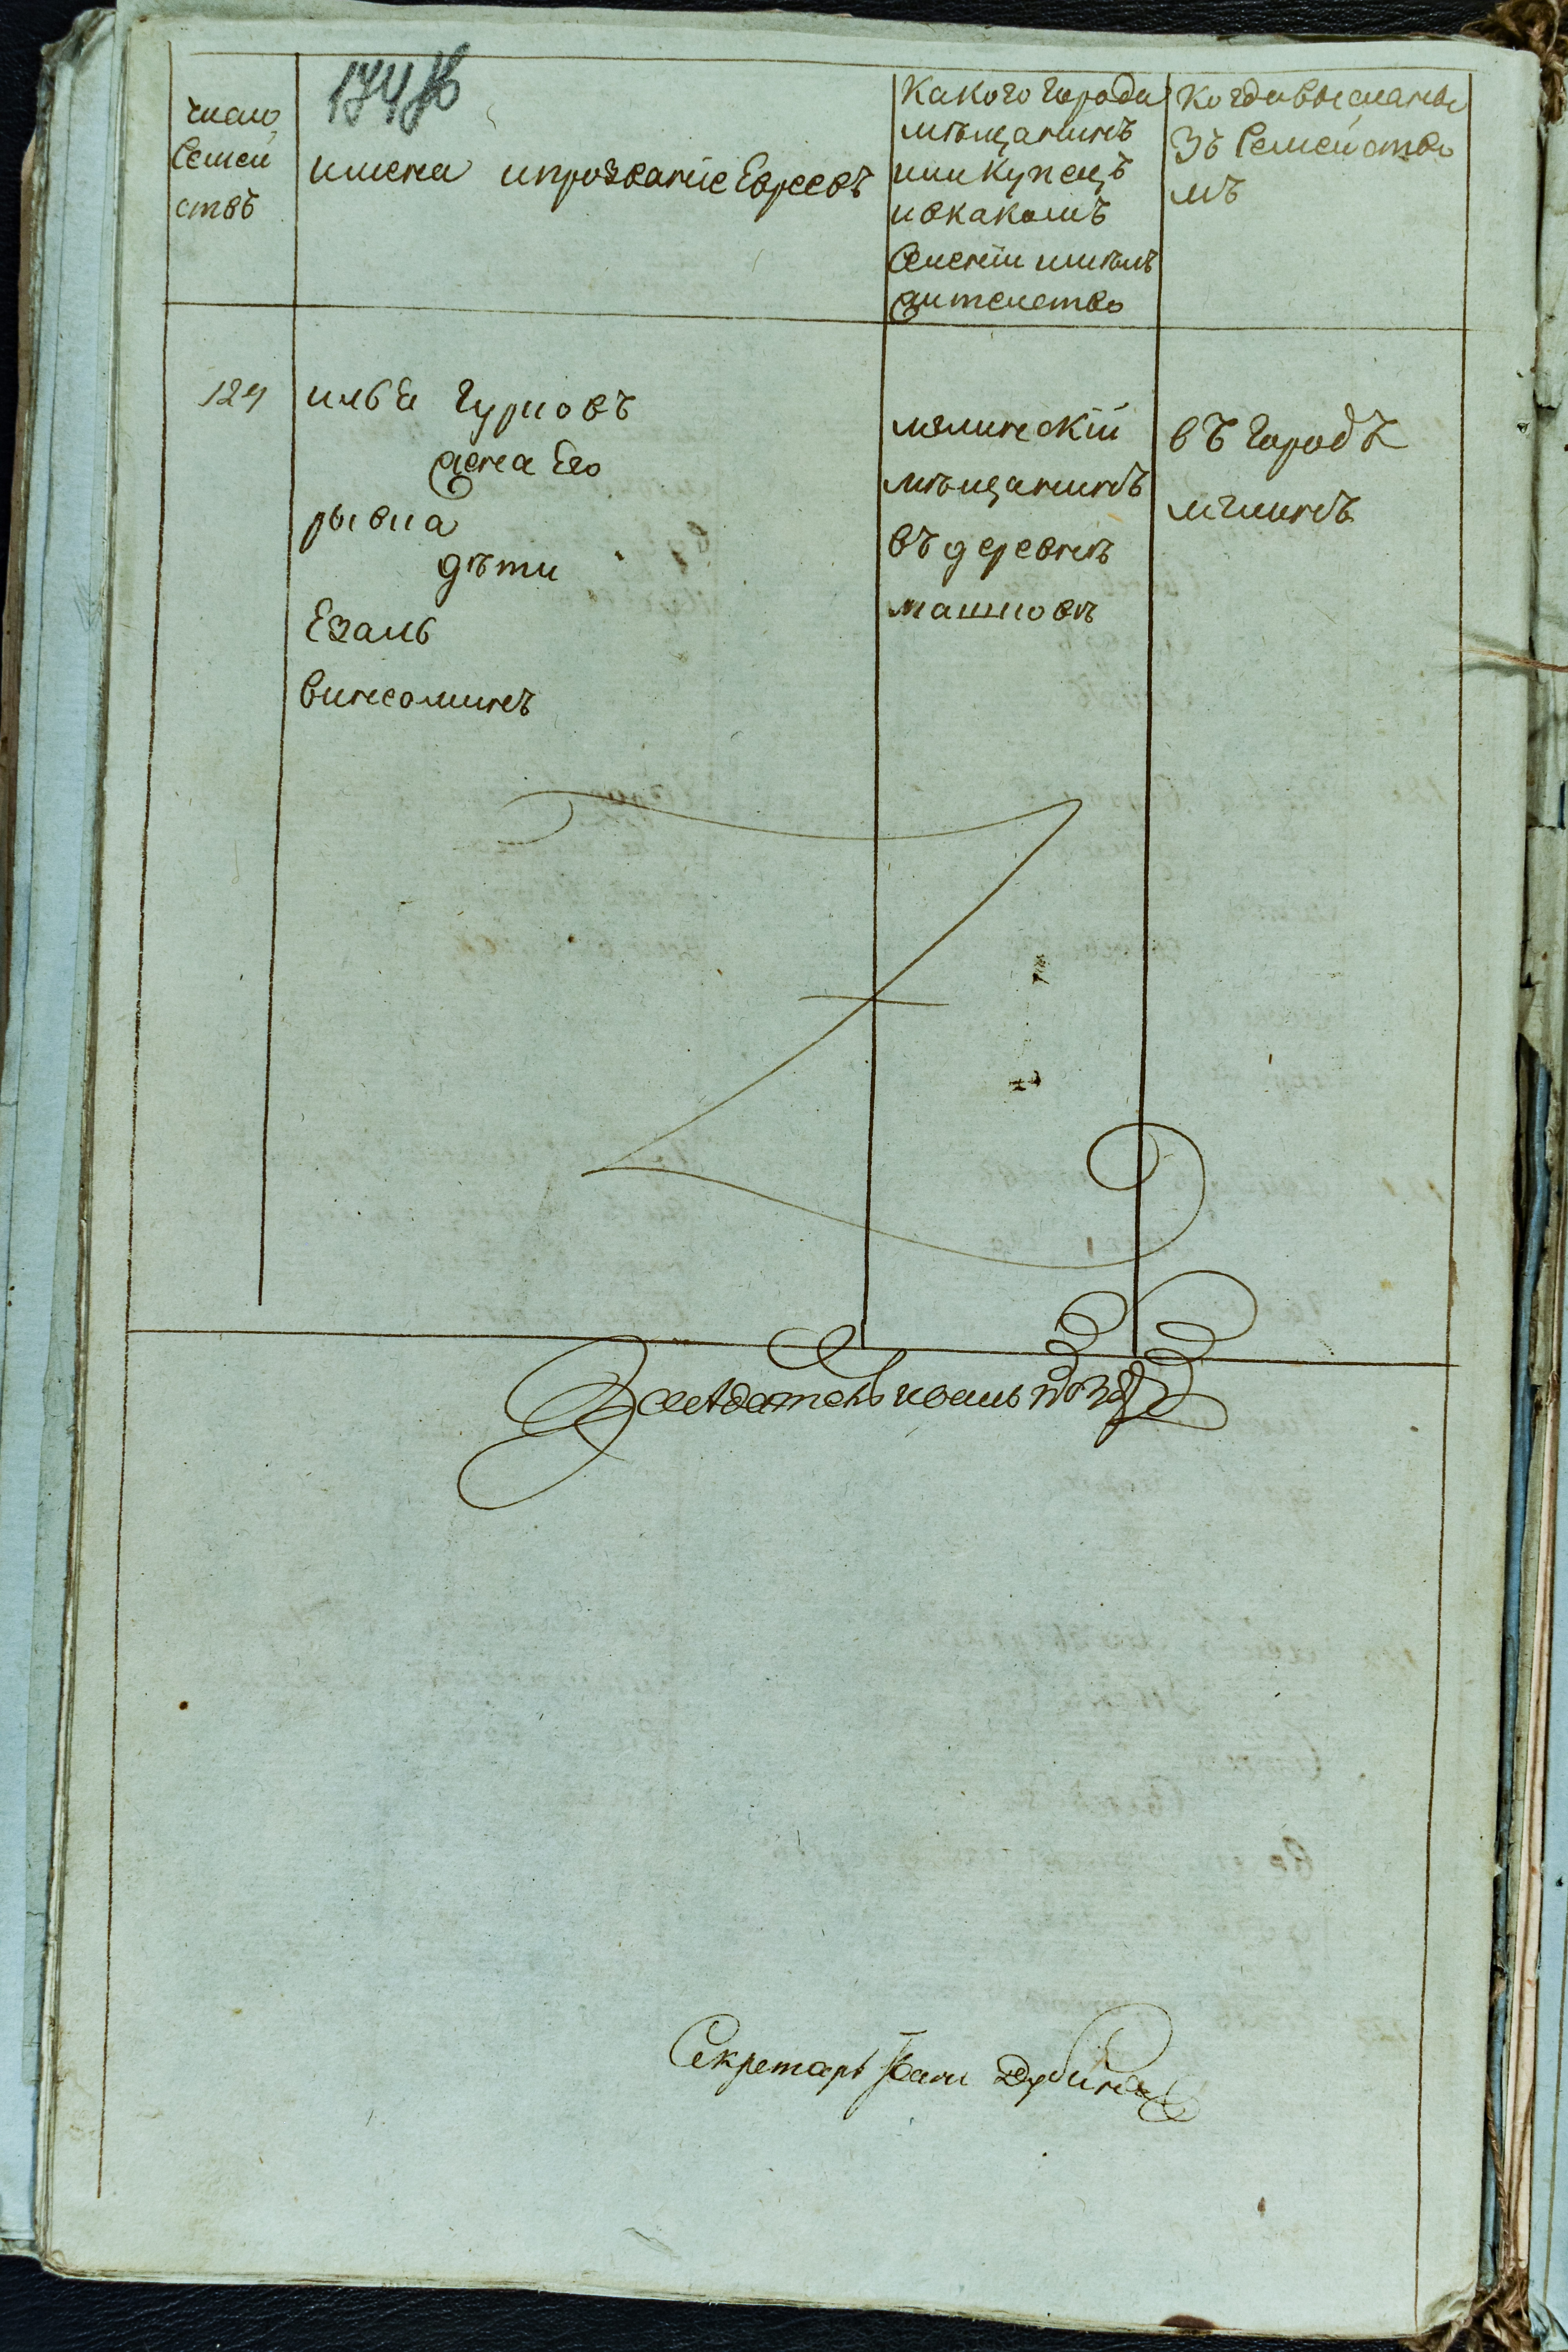 174 об
число
семей
ствъ
имена ипрозваніе Евреевъ
Какого города
мѣщанинъ
или купецъ
ивкакомъ
селеніи имѣлъ
жителство
Когда высланы
зъ семейство
мъ
124
илья гуриовъ
жена Его
рывка
дѣти
Ехаль
винеоминъ
мглинскій
мѣщанинъ
въ деревнѣ
въ городъ
мглинъ
Заседатель иванъ
Секретарь Іванъ Дубина